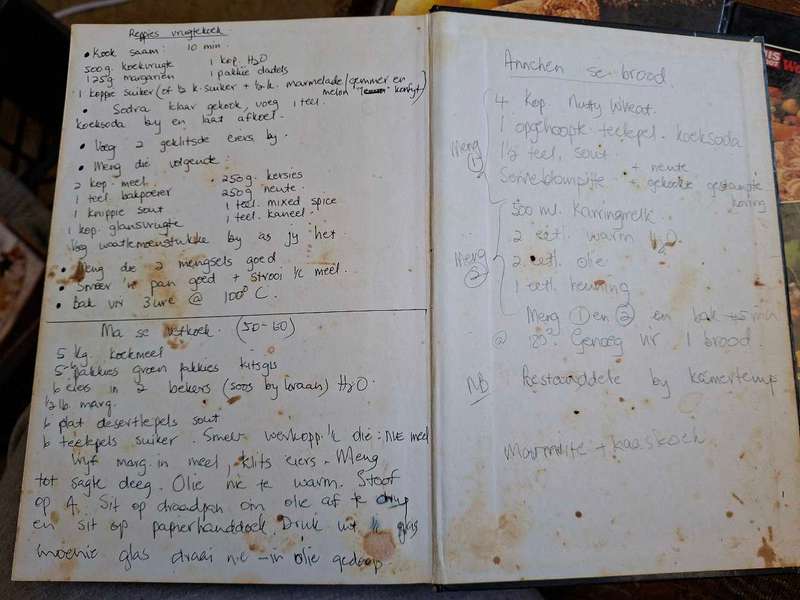 Reppies vrugtekoek
• Kook saam: 10 min.
500g. koekvrugte 1 kop. H₂O
125g margarien 1 pakkie dadels
1 koppie suiker (of ½ k. suiker + ½ k. marmelade/gemmer en
melon konfyt)
• Sodra klaar gekook, voeg 1 teel.
koeksoda by en laat afkoel.
• Voeg 2 geklitsde eiers by.
• Meng die volgende:
2 kop. meel • 250g. kersies
1 teel bakpoeier 250g neute.
1 knippie sout 1 teel. mixed spice
1 kop. glansvrugte 1 teel. kaneel.
Voeg waatlemoenstukke by as jy het.
• Meng die 2 mengsels goed
• Smeer 'n pan goed + strooi meel.
• Bak vir 3 ure @ 100° C.
Ma se vetkoek. (50-60)
5 kg. koekmeel
pakkies groen pakkies kitsgis
6 eiers in 2 bekers (soos by braai) H₂O.
½ lb. marg.
6 plat desertlepels sout
6 teelepels suiker. Smelt die: NIE meel
Vryf marg. in meel, klits eiers. Meng
tot sagte deeg. Olie nie te warm. Stoof
op 4. Sit op draadpan om olie af te drup
en sit op papierhanddoek. Druk uit glas
moenie glas draai nie — in olie gedoop.
Annchen se brood
4 Kop. Nutty Wheat.
1 opgehoopte teelepel. koeksoda
Meng 1
1½ teel. sout.
Sonneblompitte + neute
500 ml. Karringmelk.
2 eetl. warm H₂O.
Meng 2
2 eetl. olie
1 eetl. heuning
Meng 1 en 2 en bak min
@ 180. Genoeg vir 1 brood.
NB Bestanddele by kamertemp
Marmite + kaaskoek
WARE